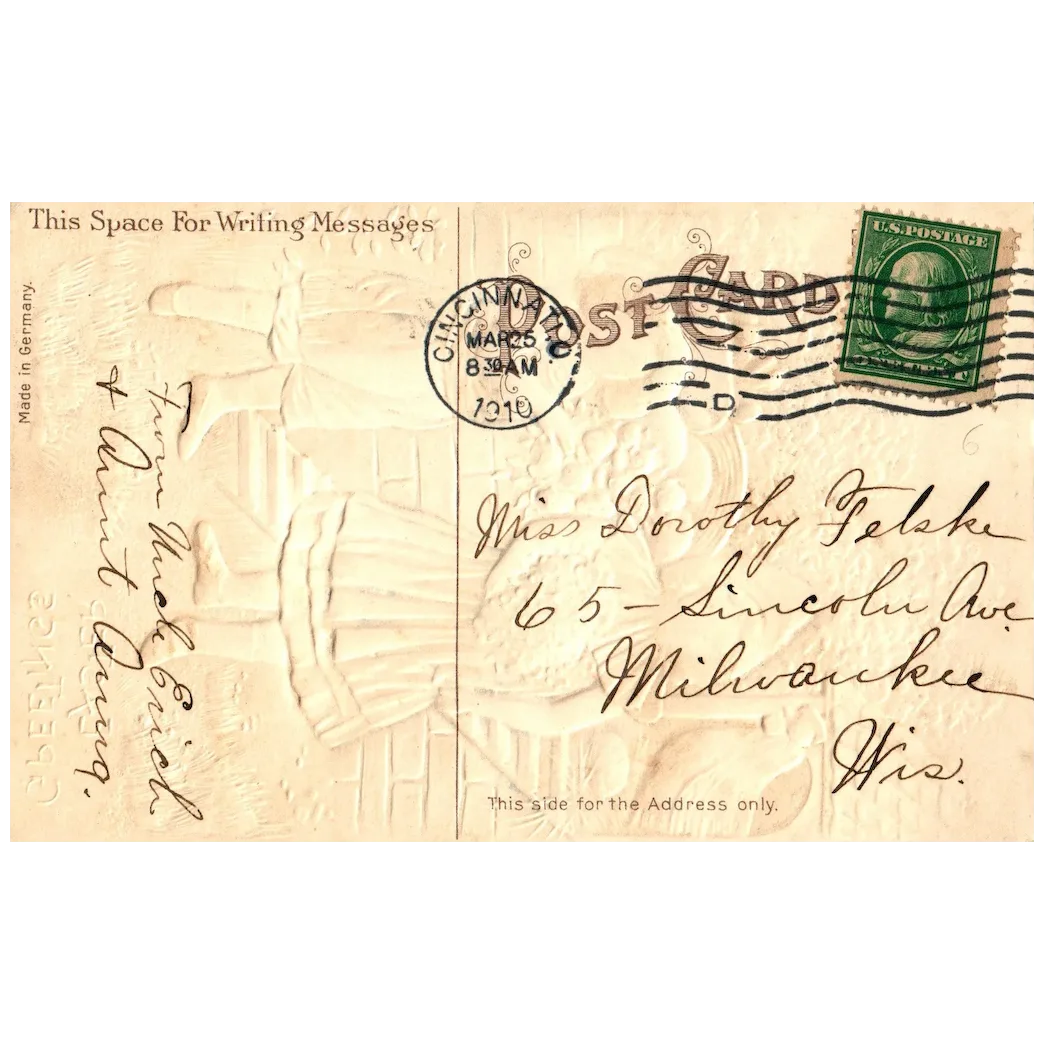 This Space For Writing Messages
Made in Germany.
From Uncle Erich
+ Aunt Anna.
POST CARD
CINCINNATI, O.
MAR 25
8 30 AM
1910
D
U.S. POSTAGE
6
Miss Dorothy Felske
65 - Lincoln Ave.
Milwaukee
Wis.
This side for the Address only.